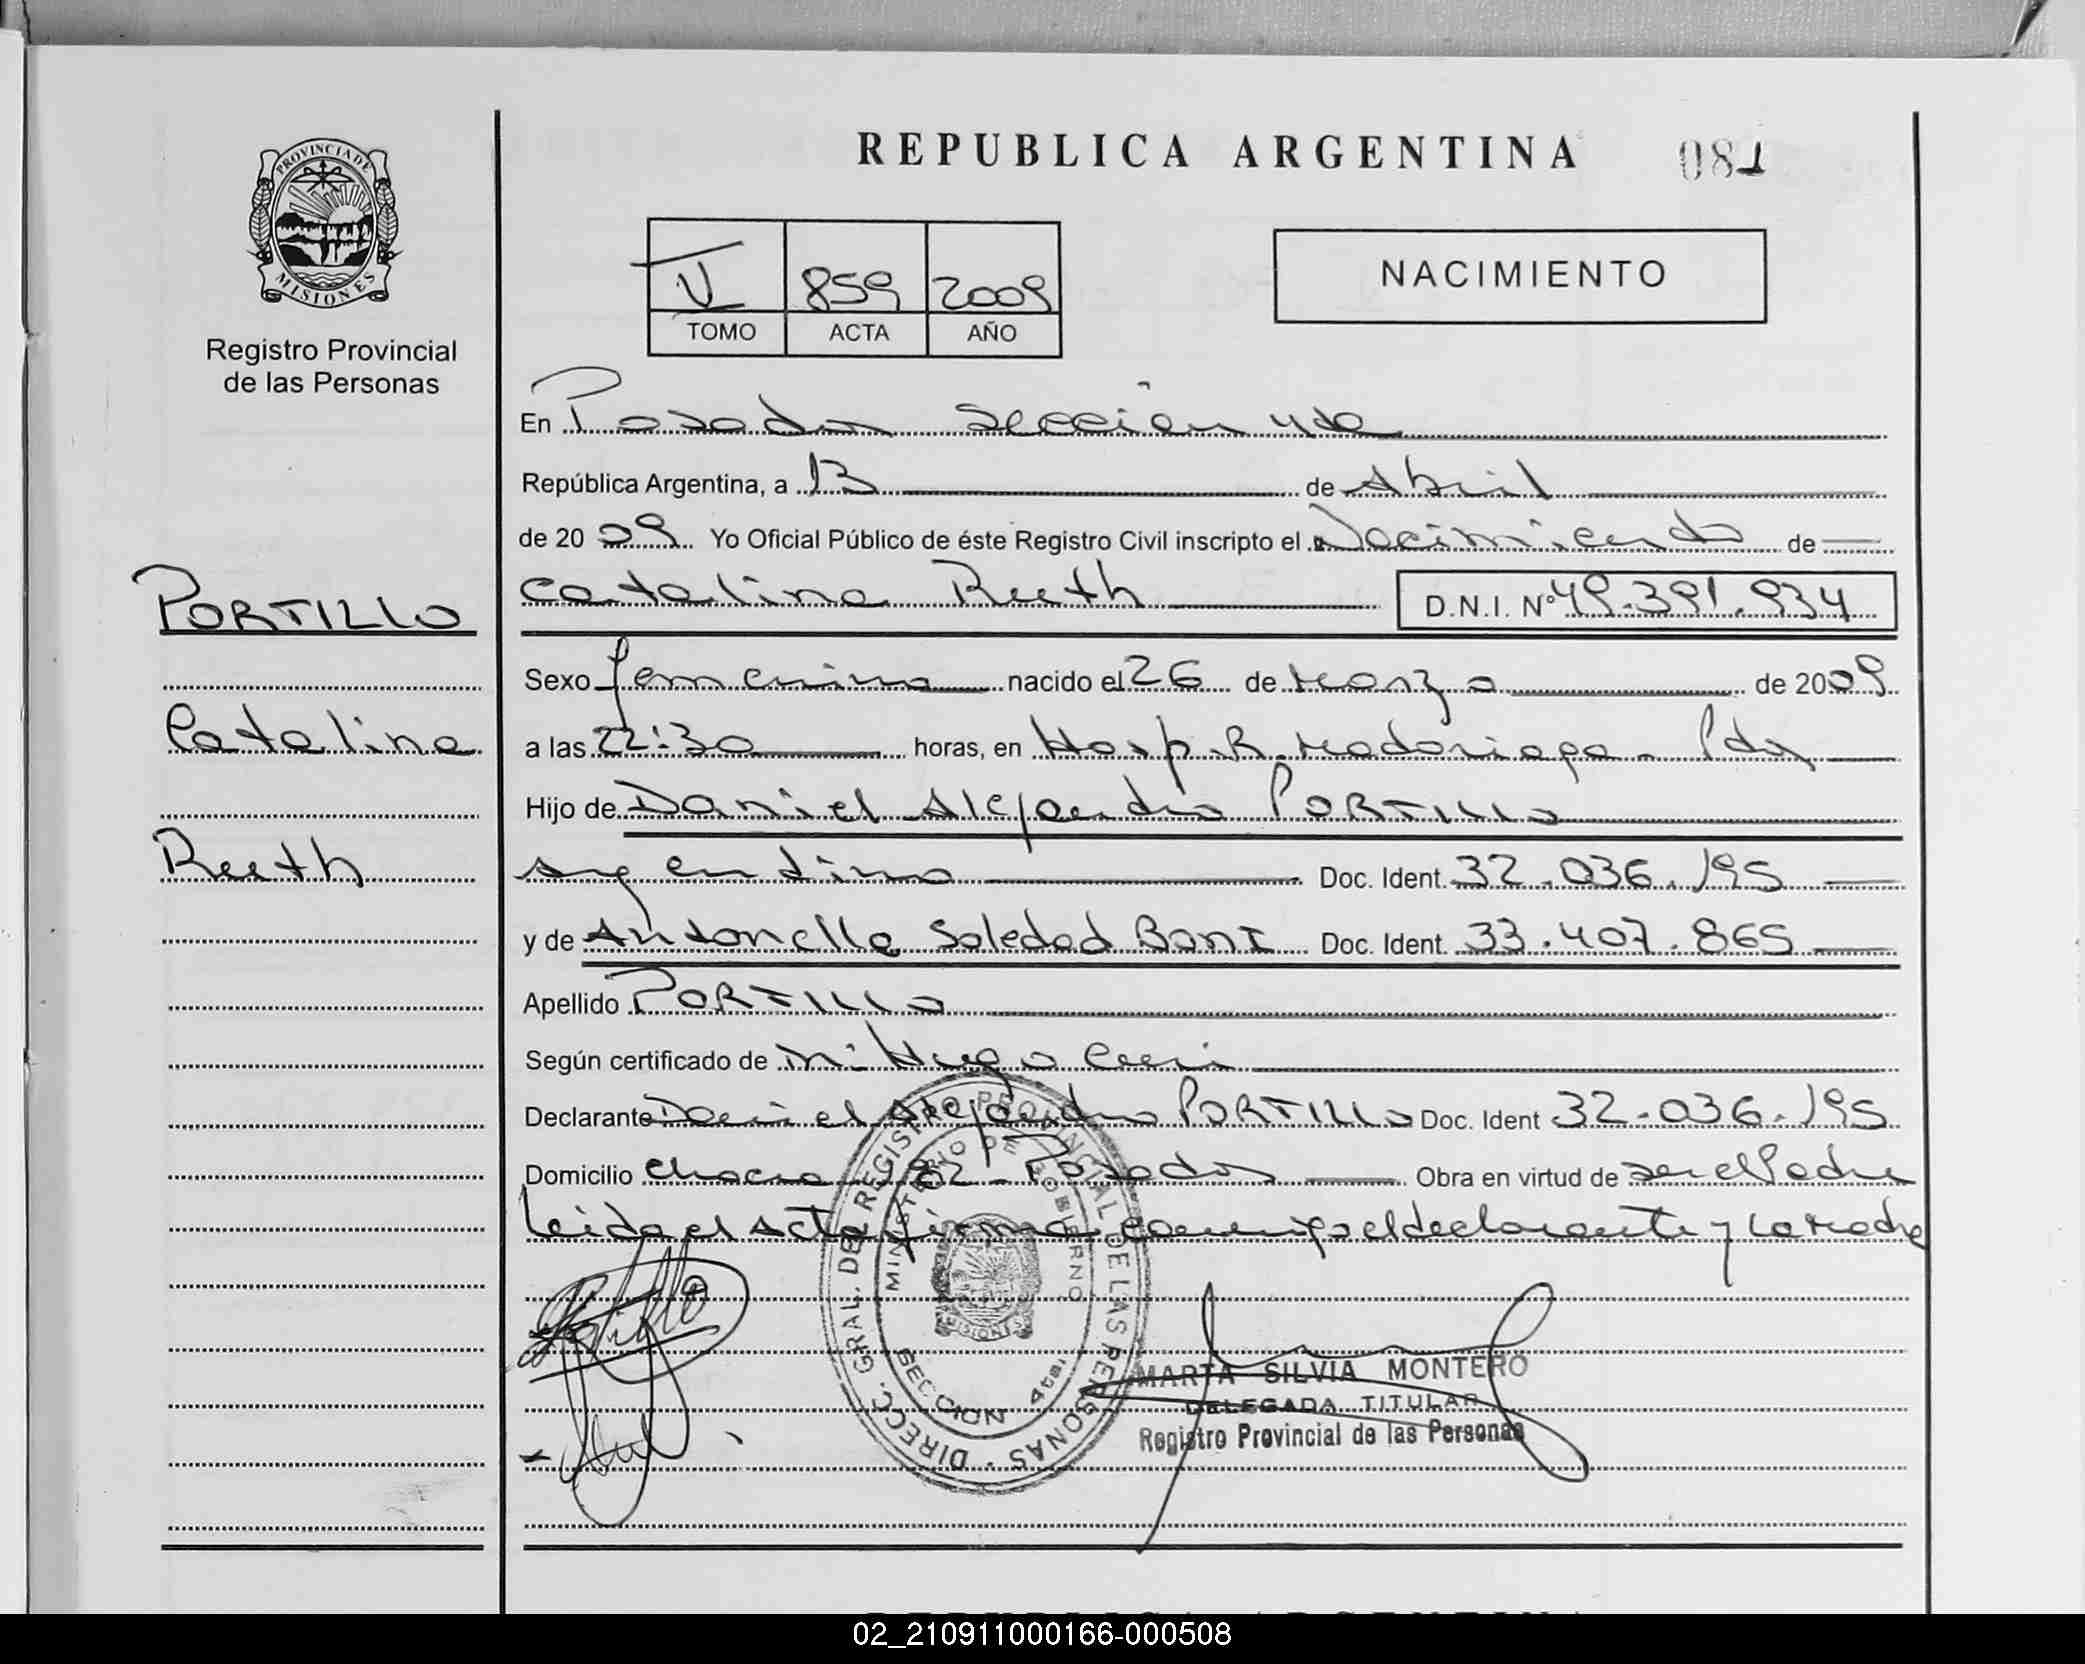 REPUBLICA ARGENTINA
081
PROVINCIA DE
MISIONES
Registro Provincial
de las Personas
V 859 2009
TOMO ACTA AÑO
NACIMIENTO
En Posadas Sección 4ta
República Argentina, a 13 de Abril
de 2009 Yo Oficial Público de éste Registro Civil inscripto el Nacimiento de
Catalina Ruth D.N.I. Nº 49.391.934
PORTILLO
Catalina
Ruth
Sexo femenino nacido el 26 de Marzo de 2009
a las 22:30 horas, en Hosp. R. Madariaga - Pdas
Hijo de Daniel Alejandro PORTILLO
Argentino Doc. Ident. 32.036.195
y de Antonella Soledad Doc. Ident. 33.407.865
Apellido PORTILLO
Según certificado de Hugo
Declarante Daniel Alejandro PORTILLO Doc. Ident 32.036.195
Domicilio Chacra 182 - Posadas Obra en virtud de ser el Padre
Leida el Acta firma conmigo el declarante y la Madre
DIRECC. GRAL. DEL REGISTRO PROVINCIAL DE LAS PERSONAS
MINISTERIO DE GOBIERNO
SECCION 4tai
MISIONES
MARTA SILVIA MONTERO
DELEGADA TITULAR
Registro Provincial de las Personas
02_210911000166-000508